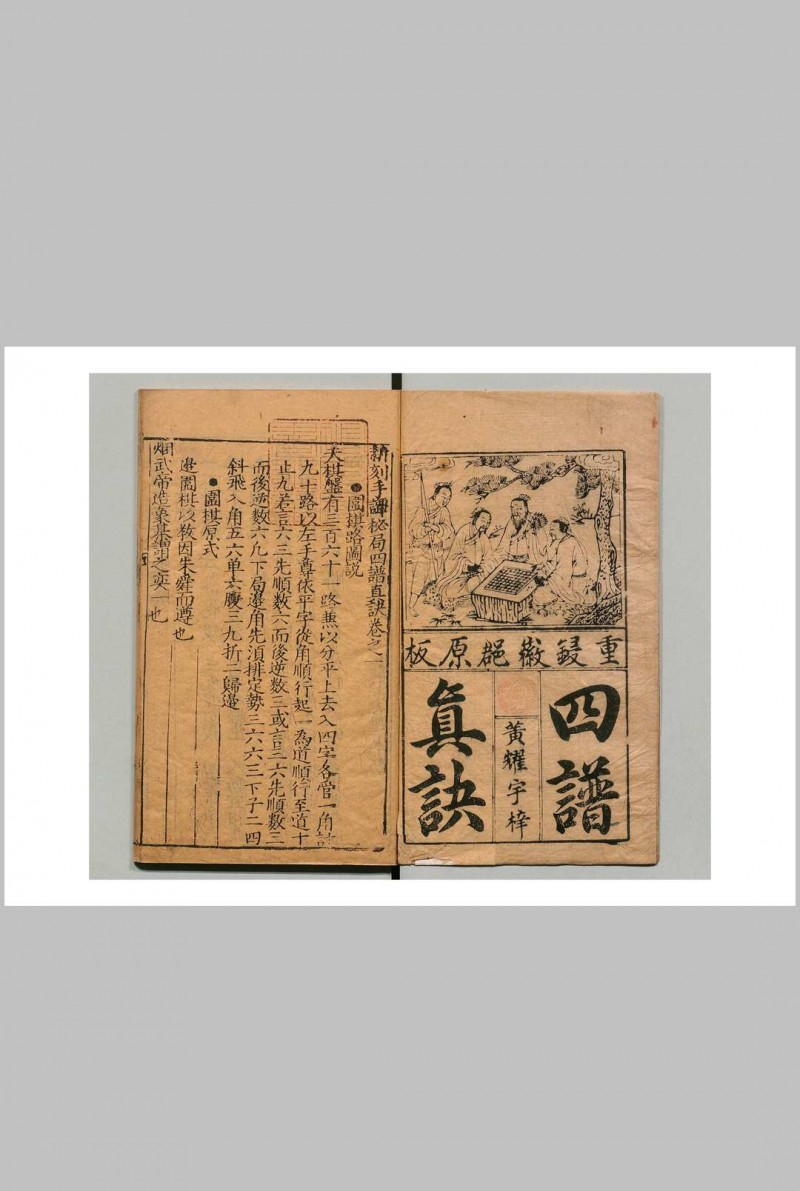 重鋟徽郡原板
四譜
黃耀宇梓
眞訣
新刻手譚秘局四譜直訣卷之一
●圍棋路圖説
夫棋盤有三百六十一路蕉以分平上去入四字各管一角計
九十路以左手尊依平字從角順行起一為道順行至道十
止九若言六三先順數六而後逆數三或言三六先順數三
而後逆數六凡下局邉角先須排定勢三六六三下子二四
斜飛入角五六单六腰三九折二歸邉
●圍棋原式
邉圍棋以教因朱舜而遵也
武帝造象棋謂之奕一也